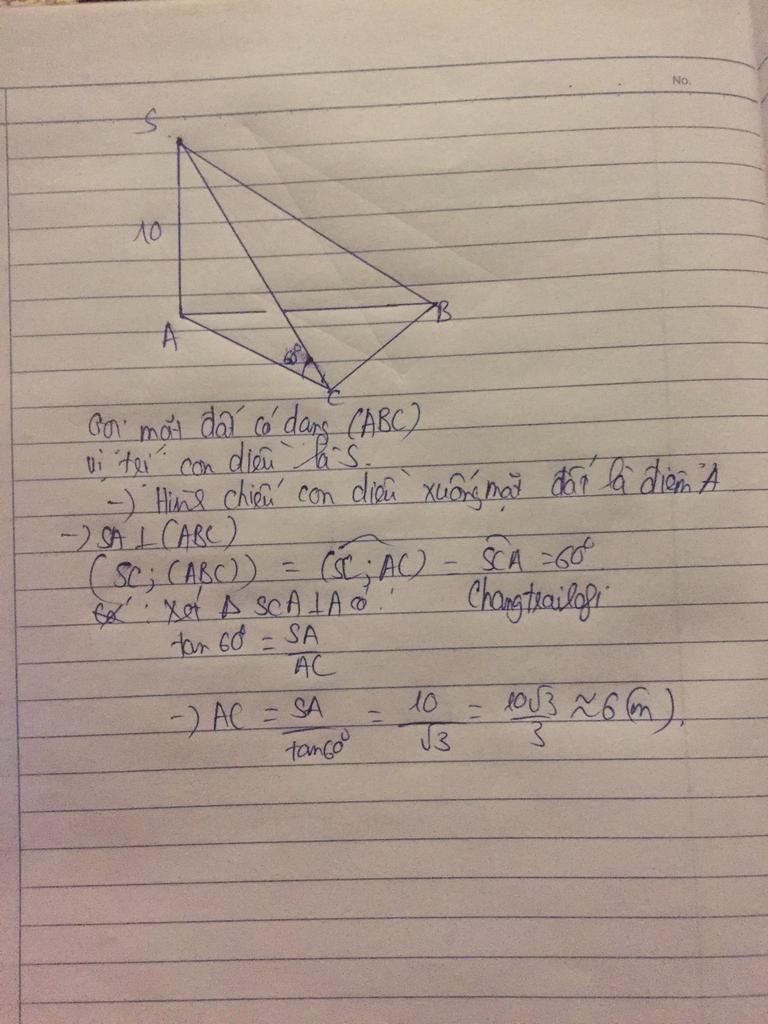 No.
S
10
A
B
60°
C
Gọi mặt đất có dạng (ABC)
Vị trí con diều là S.
→ Hình chiếu con diều xuống mặt đất là điểm A
→ SA ⊥ (ABC)
(SC; (ABC)) = (SC; AC) - SCA = 60°
Xét Δ SCA ⊥ A có: Changtrailofi
tan 60° = SA/AC
→ AC = SA/tan60° = 10/√3 = 10√3/3 ≈ 6 (m).